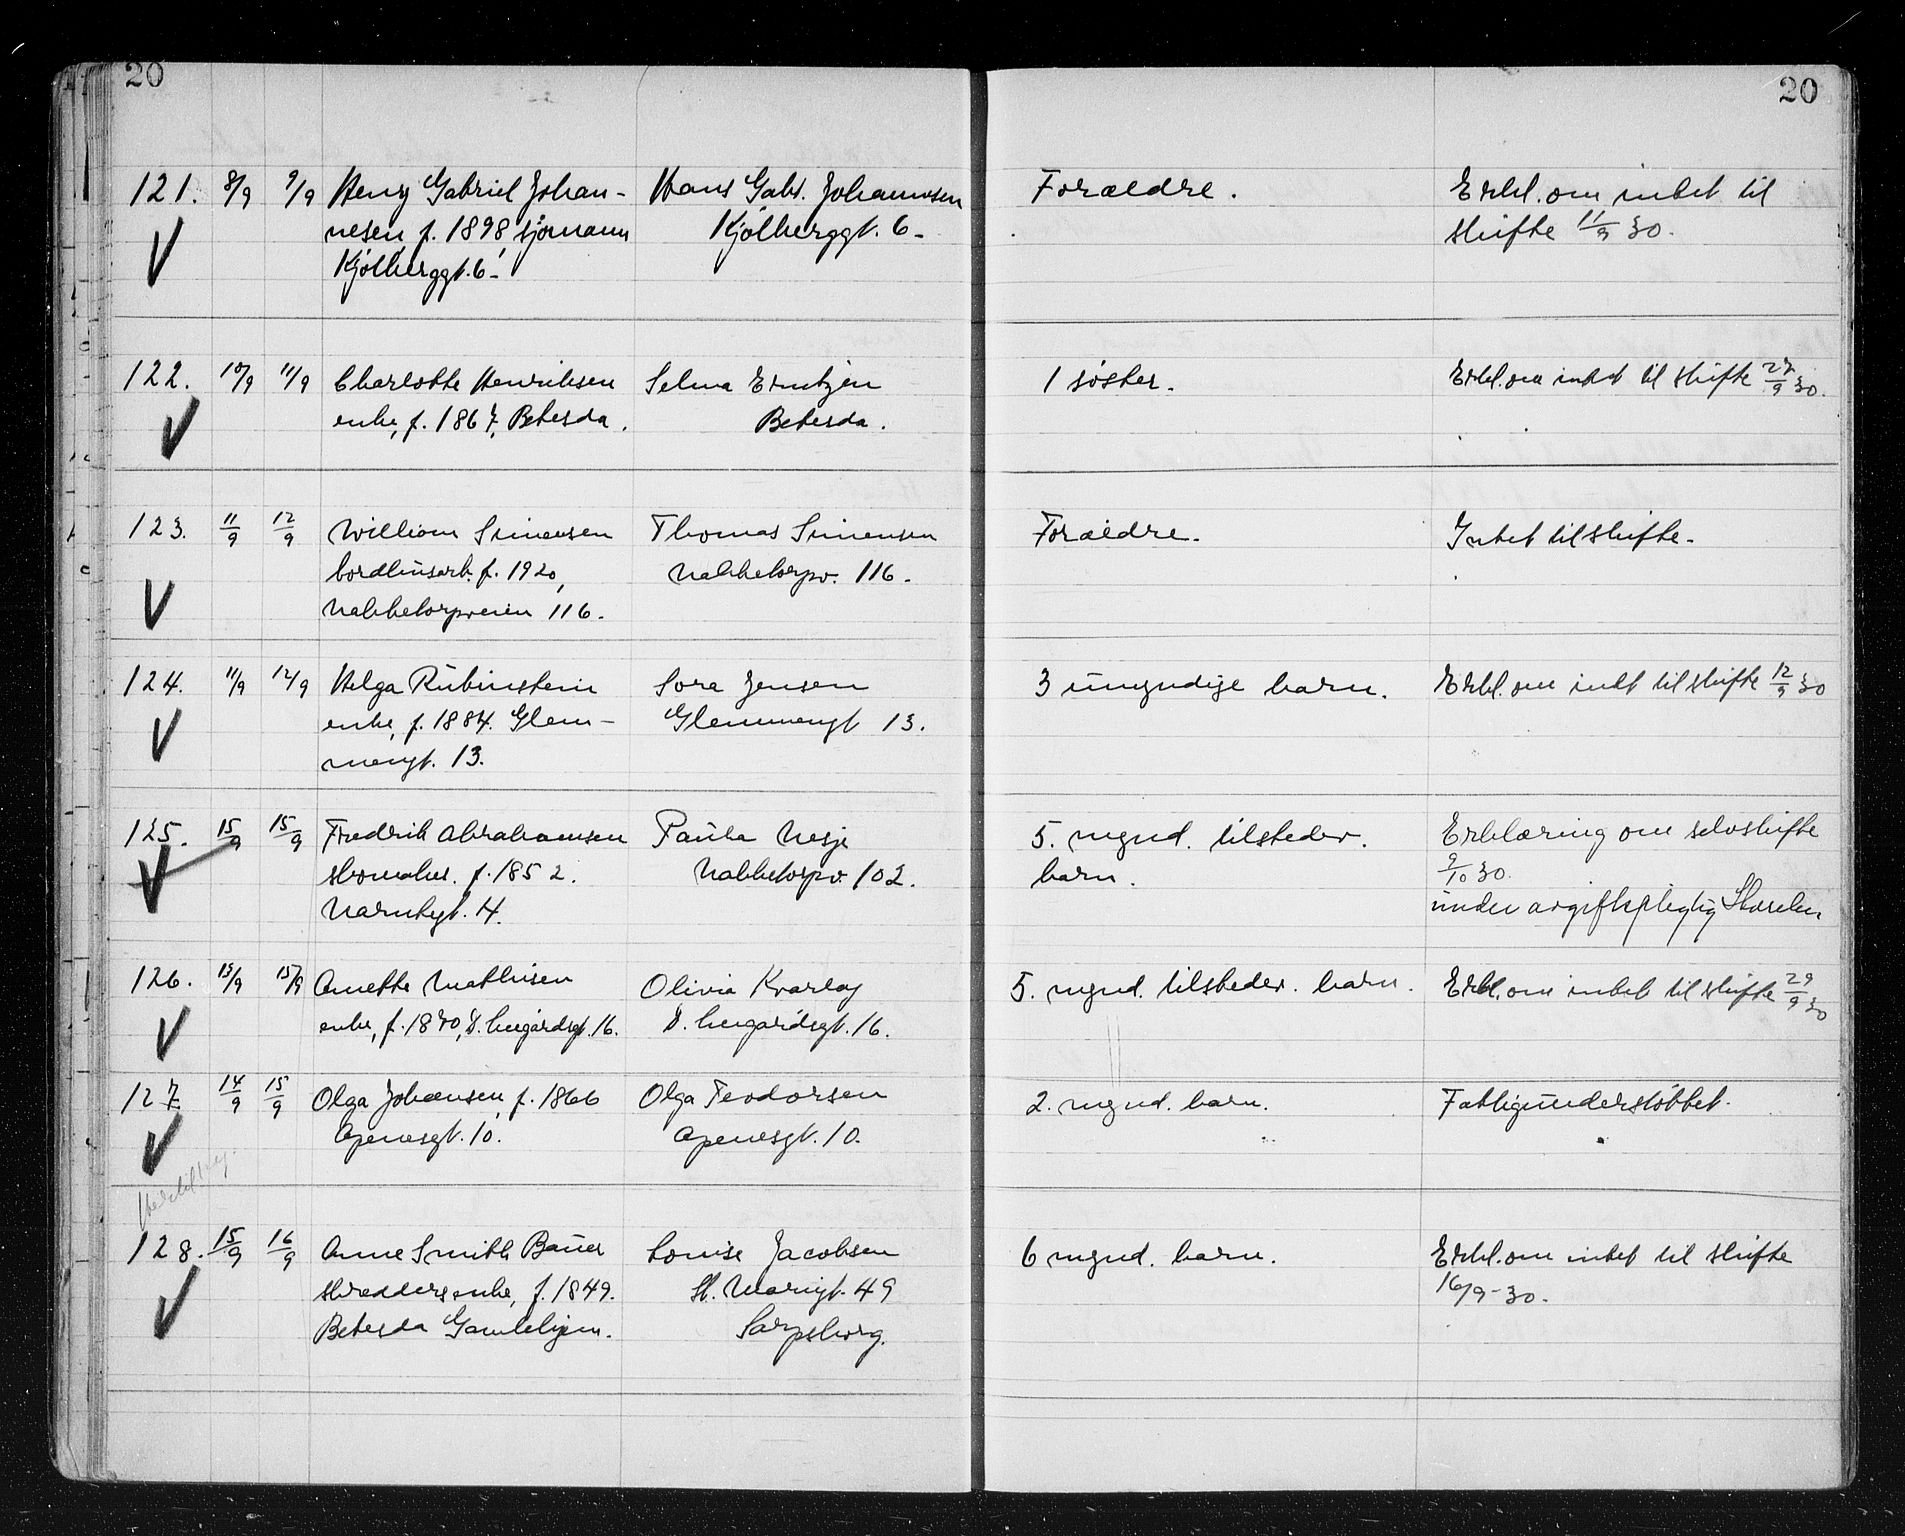 20
20
121. 8/9 9/9 Henry Gabriel Johan- Hans Gabr. Johannesen Forældre. Erkl. om intet til
nesen, f. 1898, sjømann Kjølberggt. 6- skifte 11/9 30.
Kjølberggt. 6-
122. 10/9 11/9 Charlotte Henriksen Selma Erntzen 1 søster. Erkl. om intet til skifte 27/9 30.
enke, f. 1867, Betesda. Betesda.
123. 11/9 12/9 William Simensen Thomas Simensen Forældre. Intet til skifte.
f. 1920, Nabbetorpv. 116.
Nabbetorpveien 116.
124. 11/9 12/9 Helga Rubinstein Lora Jensen 3 umyndige barn. Erkl. om intet til skifte 12/9 30
enke, f. 1884. Glem- Glemmengt 13.
mengt. 13.
125. 15/9 15/9 Fredrik Abrahamsen Paula Nesje 5. mynd. tilsteder. Erklæring om selvskifte
skomaker. f. 1852. Nabbetorpv. 102. barn. 9/10 30.
gt. 4. under avgiftspligtig Størrelse
126. 13/9 15/9 Anette Mathisen Olivia 5. mynd. tilsteder. barn. Erkl. om intet til skifte 29/9 30
enke, f. 1870, gt. 16. gt. 16.
127 14/9 15/9 Olga Johansen, f. 1866 Olga Teodorsen 2. mynd. barn. Fattigunderstøttet.
Apenesgt. 10. Apenesgt. 10.
128. 15/9 16/9 Anne Smith Bauer Louise Jacobsen 6 mynd. barn. Erkl. om intet til skifte
skreddersenke, f. 1849. St. Mariegt. 49 16/9-30.
Betesda Gamlehjem. Sarpsborg.